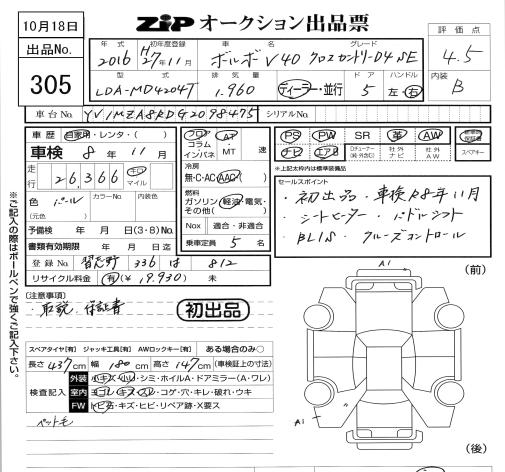 10月18日
ZIP オークション出品票
出品No.
305
年式 初年度登録 車名 グレード 評価点
2016 H27年11月 ボルボ V40 クロスカントリーD4 SE 4.5
型式 排気量 ドア ハンドル 内装
LDA-MD4204T 1.960 ディーラー・並行 5 左・右 B
車台No. YV1MZA8RDG2098475 シリアルNo.
車歴 自家用・レンタ・( )
車検 8年 11月
走行 26,366 キロ マイル
色 パール カラーNo. 内装色
(元色)
予備検 年 月 日(3・8)No.
書類有効期限 年 月 日
登録No. 習志野 336 は 812
リサイクル料金 有( ¥ 9.930 ) 未
フロア コラム インパネ AT・MT 速
冷房
無・C・AC・AAC
燃料
ガソリン・軽油・電気・その他( )
Nox 適合・非適合
乗車定員 5 名
PS PW SR 革 AW 標準 保証書
ナビ エアB Dチューナー (純・社外含) 社外ナビ 社外AW スペアキー
※上記太枠内は標準装備品
セールスポイント
・初出品・車検R8年11月
・シートヒーター・パドルシフト
・BLIS・クルーズコントロール
※ご記入の際はボールペンで強くご記入下さい。
[注意事項]
・取説・保証書
初出品
スペアタイヤ[有] ジャッキ工具[有] AWロックキー[有] ある場合のみ○
長さ437cm 幅180cm 高さ147cm(車検証上の寸法)
検査記入
外装 小キズ・小凹・シミ・ホイルA・ドアミラー(A・ワレ)
室内 ヨゴレ・キズ・スレ・コゲ・穴・キレ・破れ・ウキ
FW トビ石・キズ・ヒビ・リペア跡・X要ス
ペット毛
A1 (前)
A1
(後)